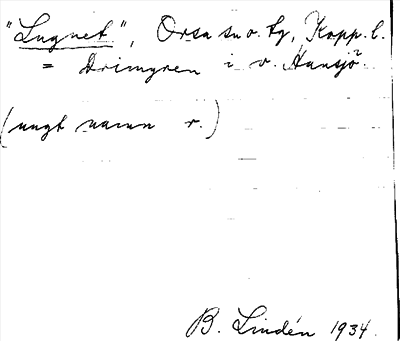 "Lugnet", Orsa sn o. tg, Kopp. l.
= Drimyren i v. Hansjö
(ungt namn r.)
B. Lindén 1934.